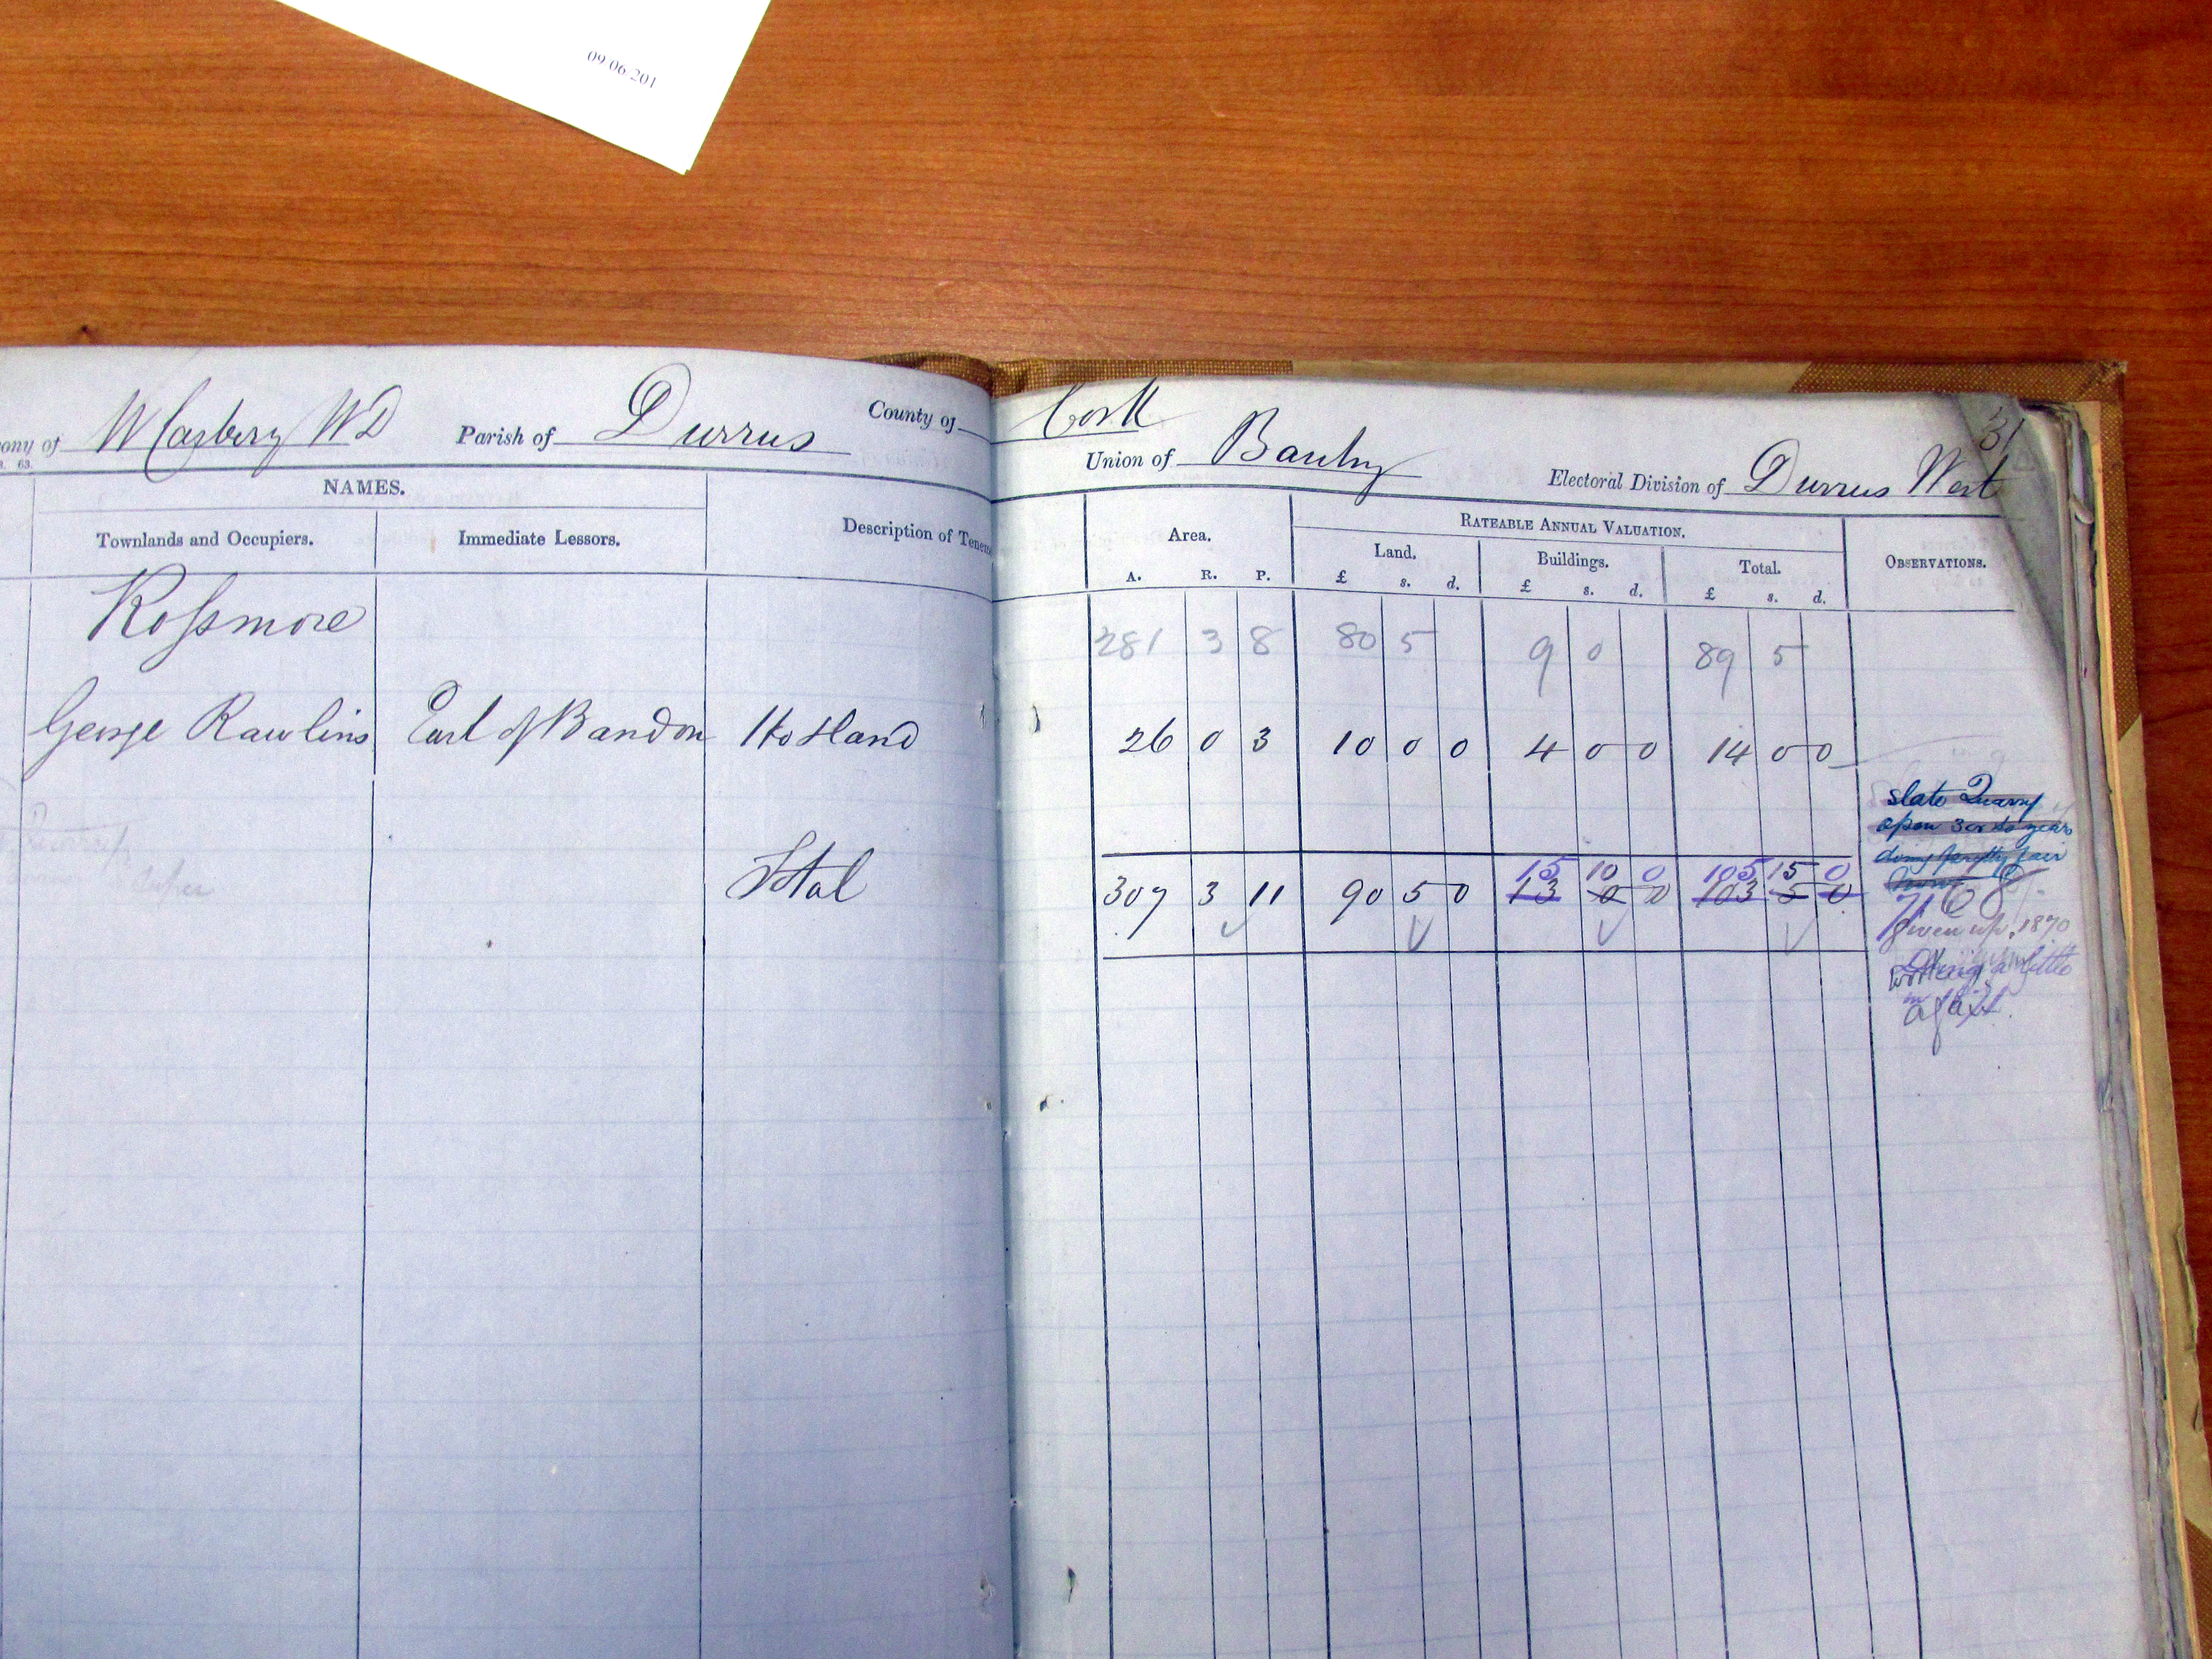 09/06/201
ony of W Carbery WD Parish of Durrus County of Cork
31
Union of Bantry Electoral Division of Durrus West
63.
NAMES.
Townlands and Occupiers. Immediate Lessors. Description of Tenem
Area. RATEABLE ANNUAL VALUATION. OBSERVATIONS.
Land. Buildings. Total.
A. R. P. £ s. d. £ s. d. £ s. d.
Rossmore 281 3 8 80 5 9 0 89 5
George Rawlins Earl of Bandon Ho & land 26 0 3 10 0 0 4 0 0 14 0 0
slate Quarry
open 3 or 4 years
doing pretty fair
now
15 10 0 105 15 0
Total 307 3 11 90 5 0 13 0 0 103 5 0
given up, 1870
working a little